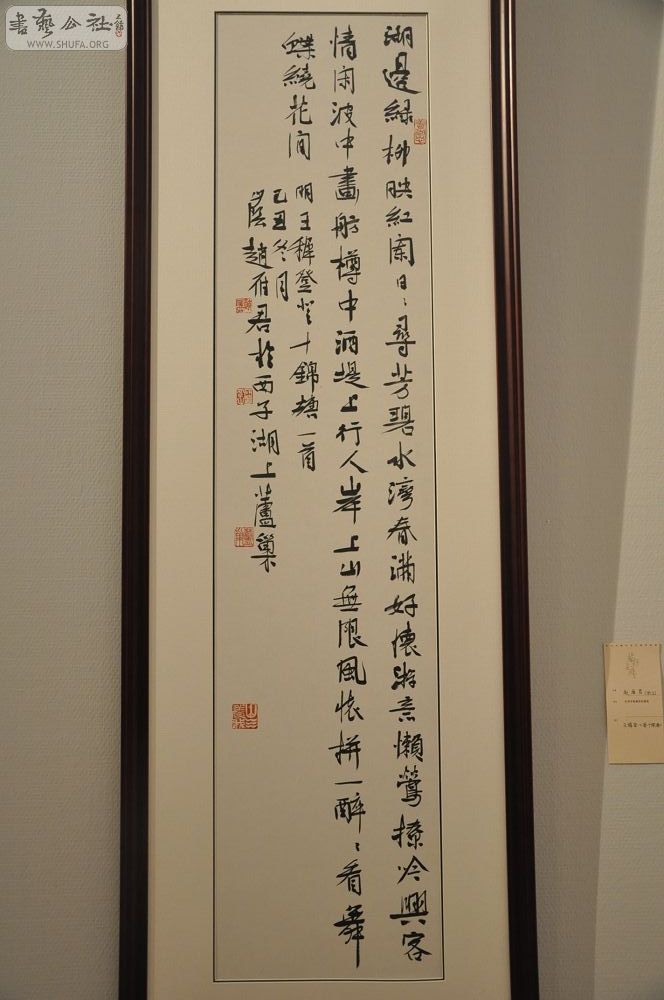 書藝公社
WWW.SHUFA.ORG
湖邊緑柳映紅闌日〻尋芳碧水灣春滿好懷游意懶鶯撩吟興客
情闲波中畫舫樽中酒堤上行人岸上山無限風懷拚一醉〻看舞
蝶繞花間
明王穉登十錦塘一首
己丑冬月
趙雁君於西子湖上蘆巢